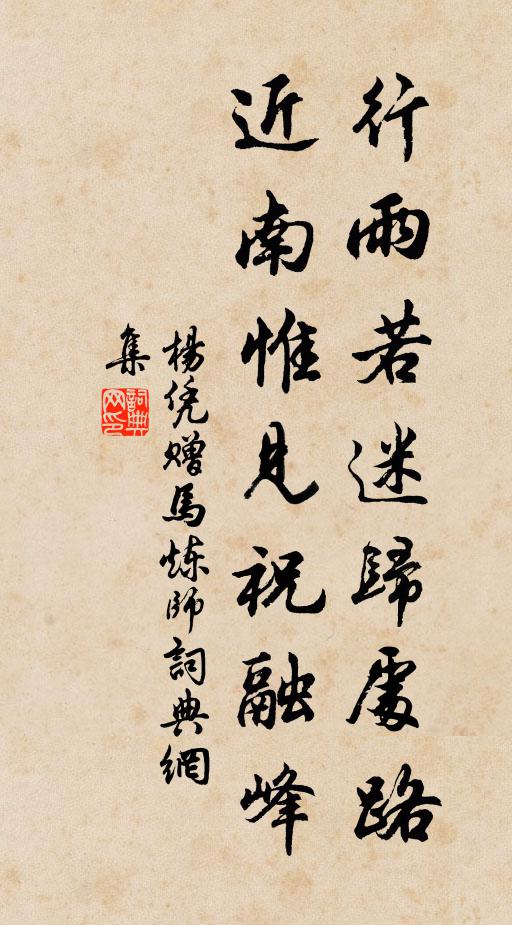 行雨若迷歸處路
近南惟見祝融峰
楊凭贈馬煉師詞典網
集
詞典
网印